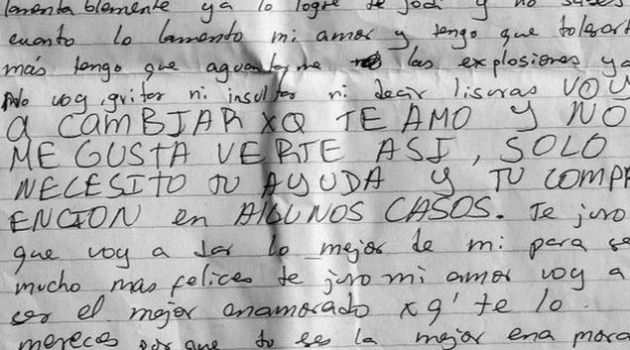 lamenta blemente ya lo logre te jodi y no sabes
cuanto lo lamento mi amor y tengo que tolerart
más tengo que aguantarme las explosiones ya
No voy gritar ni insultar ni decir lisuras VOY
a CAMBIAR XQ TE AMO Y NO
ME GUSTA VERTE ASI, SOLO
NECESITO TU AYUDA y TU COMPR
ENCION en AlGUNOS CASOS. Te juro
que voy a dar lo mejor de mi para se
mucho mas felices te juro mi amor voy a
ser el mejor enamorado xq' te lo
mereces por que tu es la mejor ena mora